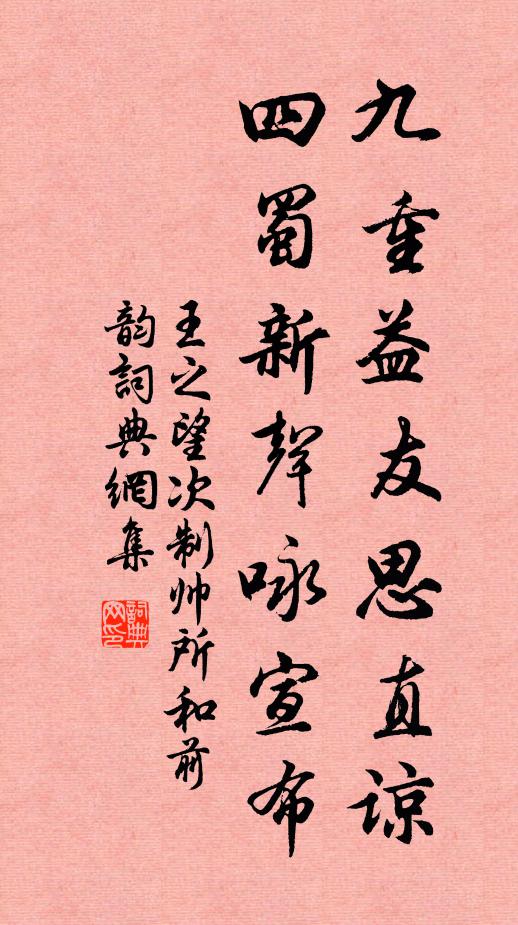 九重益友思直諒
四蜀新聲咏宣布
王之望次制帅所和前
韵詞典網集
詞典
网印